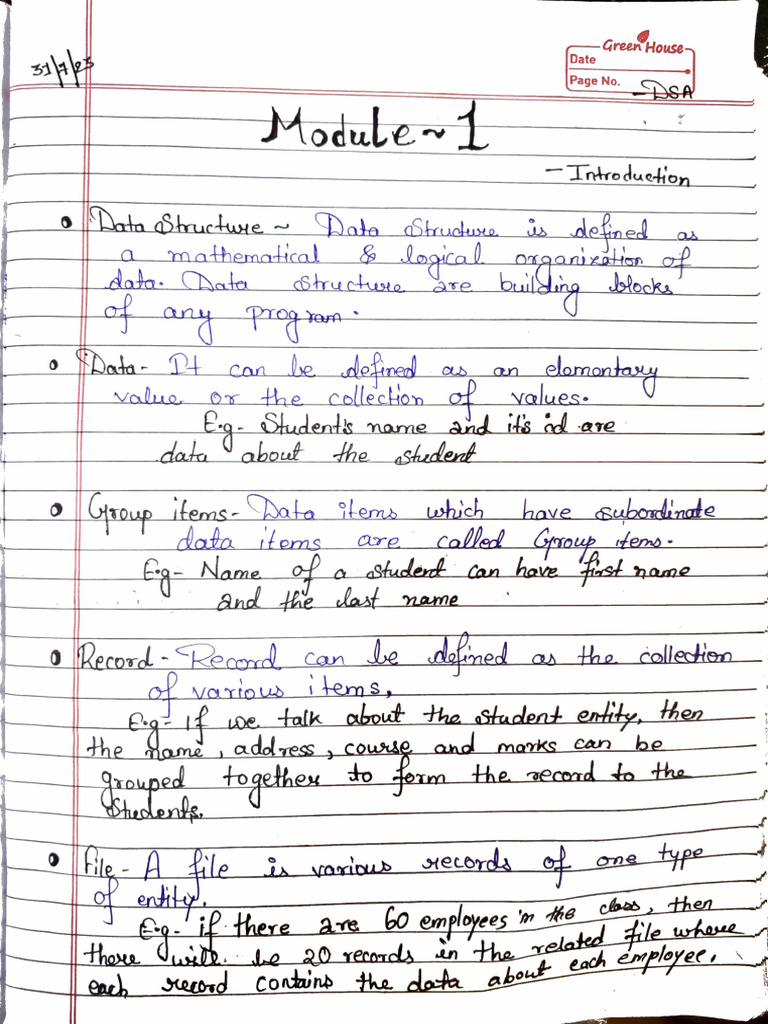 Green House
31/7/23
Date
Page No.
- DSA
Module ~ 1
- Introduction
• Data Structure ~ Data Structure is defined as
a mathematical & logical organization of
data. Data structure are building blocks
of any program.
• Data - It can be defined as an elomontary
value or the collection of values.
E.g - Student's name and it's id are
data about the student
• Group items - Data items which have subordinate
data items are called Group items.
E.g - Name of a student can have first name
and the last name
• Record - Record can be defined as the collection
of various items,
E.g - If we talk about the student entity, then
the name, address, course and marks can be
grouped together to form the record to the
students.
• File - A file is various records of one type
of entity.
E.g - if there are 60 employees in the class, then
there will be 20 records in the related file where
each record contains the data about each employee.